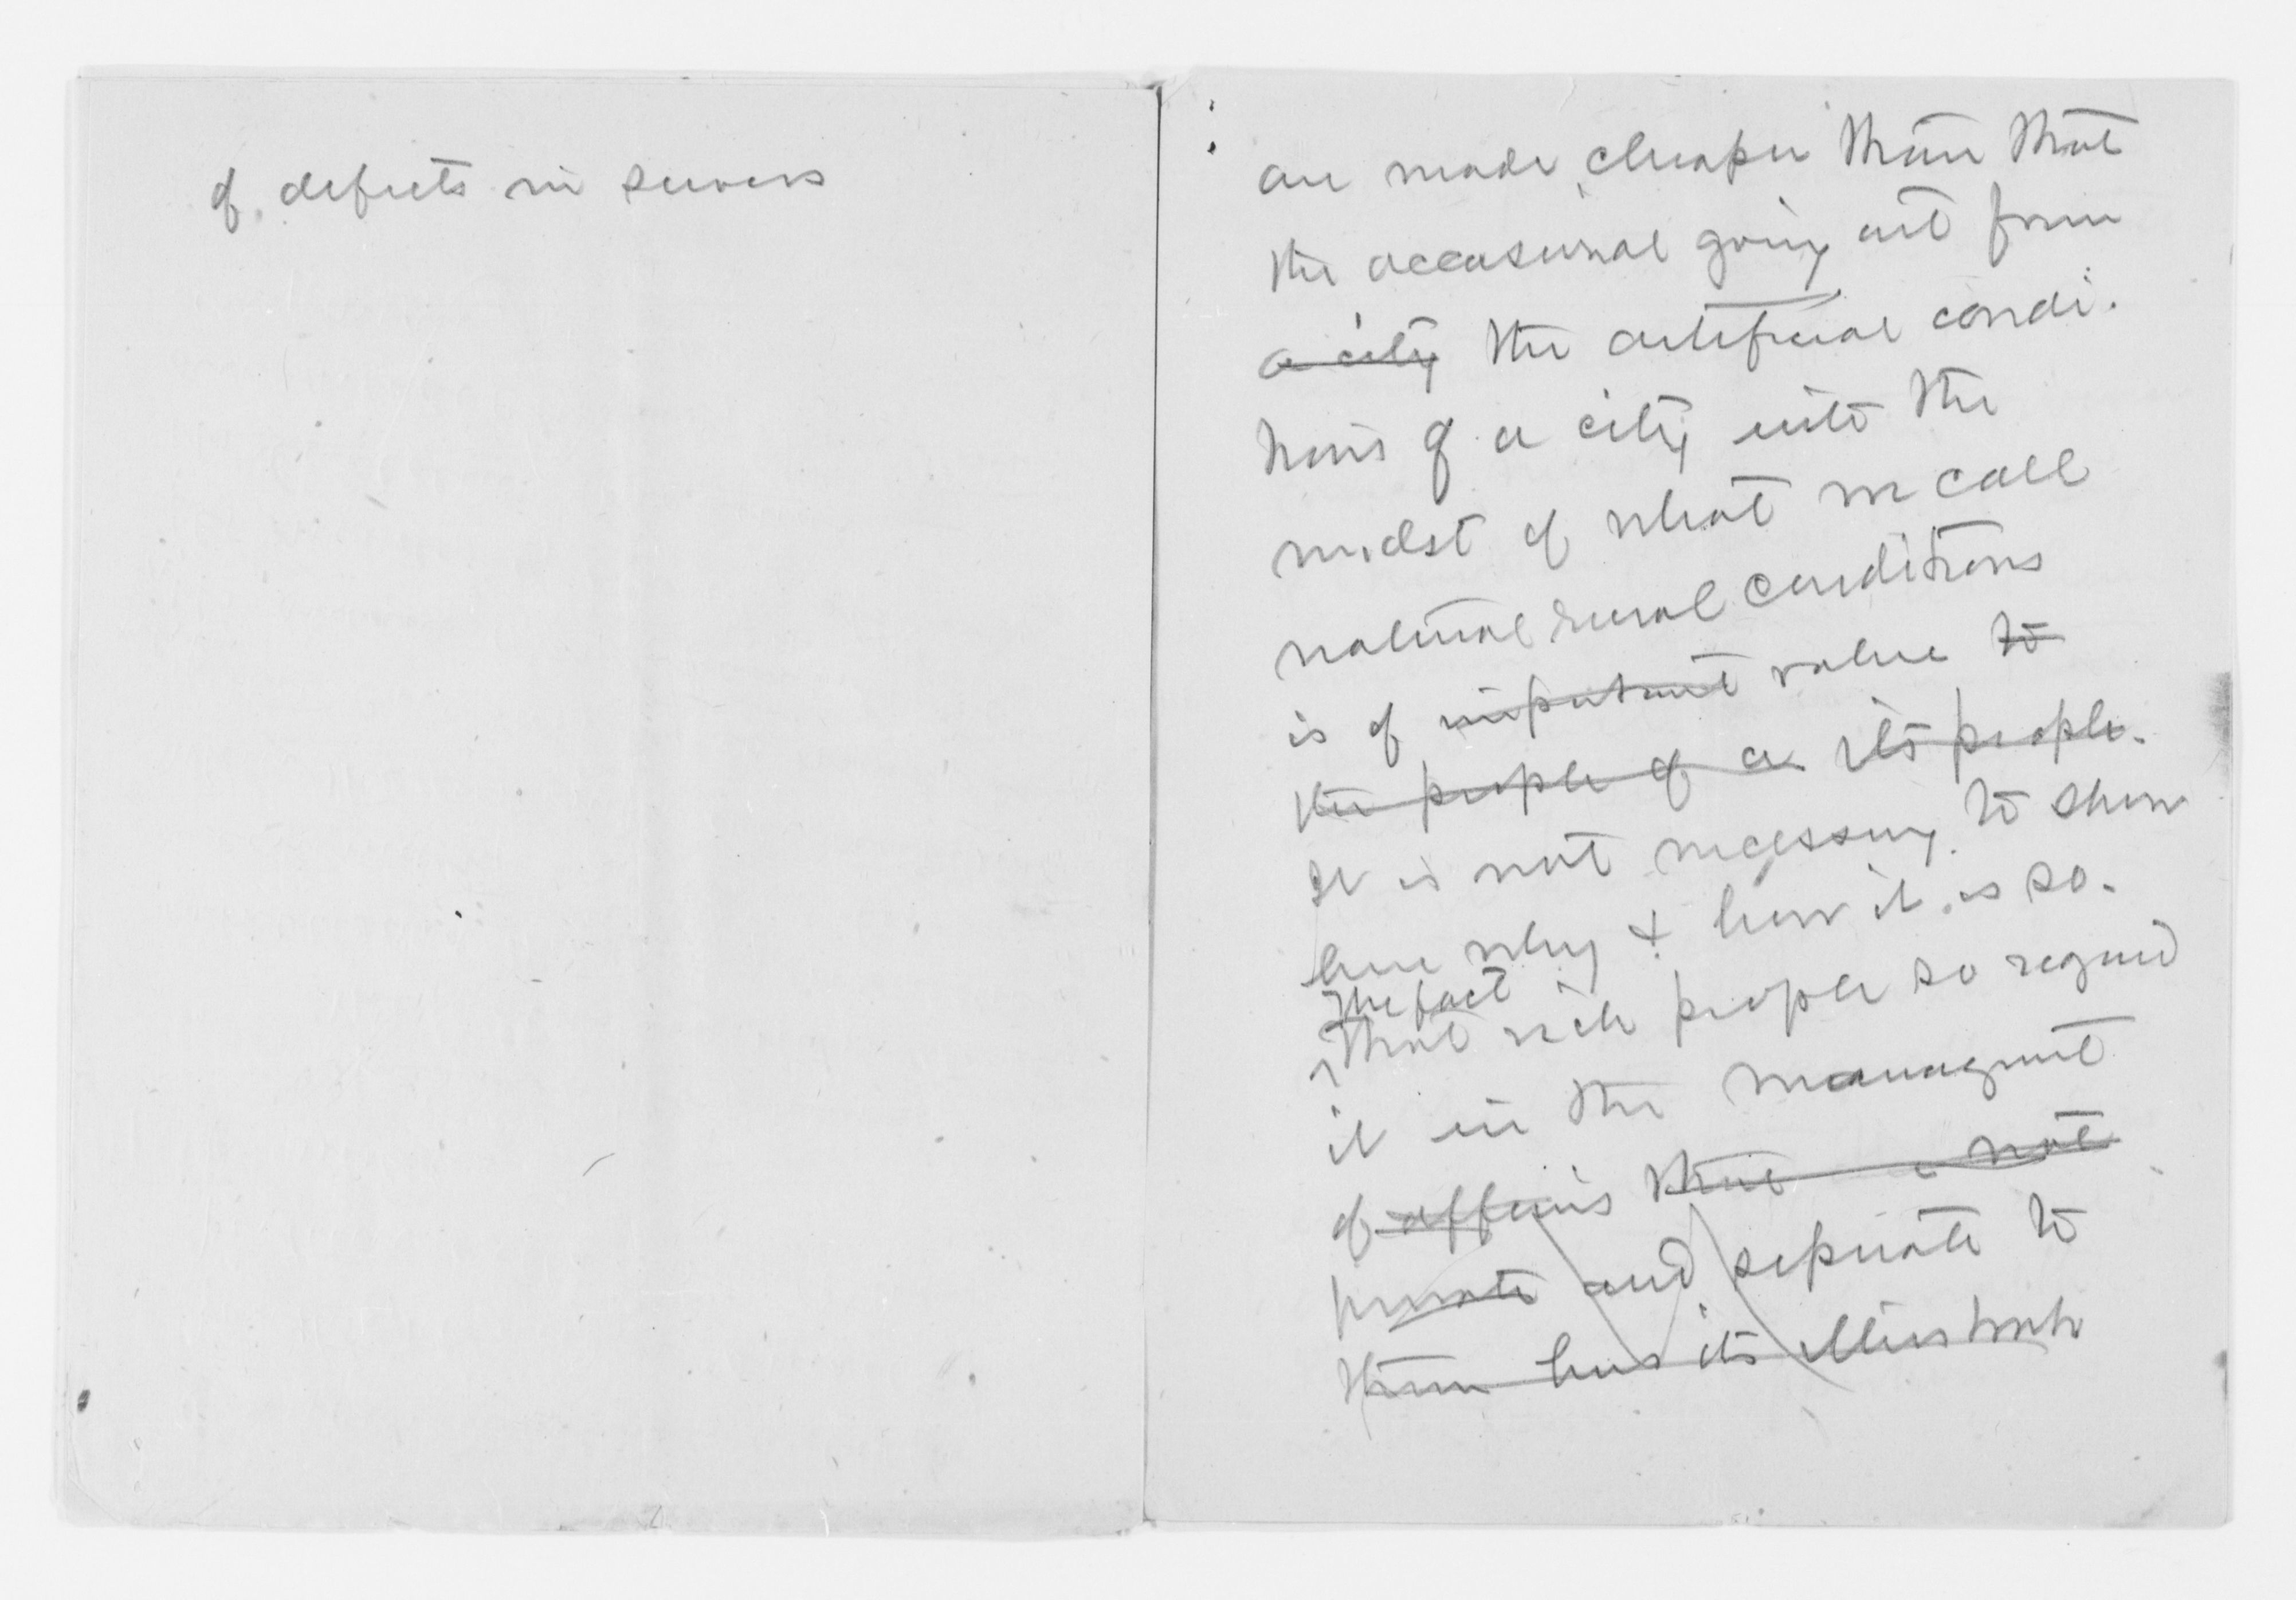 of defects in sewers
are made cheaper than that
the occasional going out from
a city the artificial condi-
tions of a city into the
midst of what we call
natural rural conditions
is of important value to
the people of a its people.
It is not necessary to show
here why & how it is so.
The fact
that rich people so regard
it in the managment
of affairs that a not
private and separate to
them has its illustrate